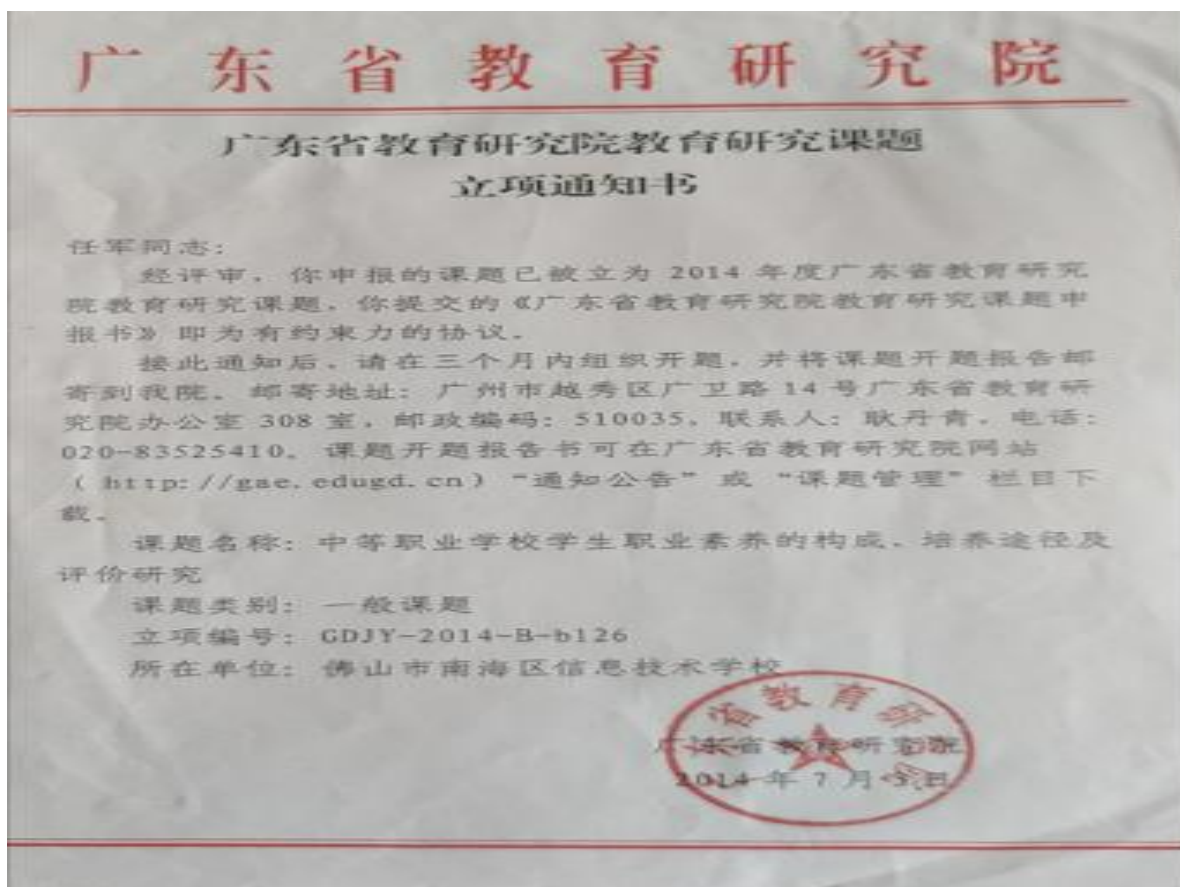 广东省教育研究院
广东省教育研究院教育研究课题
立项通知书
任军同志：
经评审，你申报的课题已被立为 2014 年度广东省教育研究
院教育研究课题，你提交的《广东省教育研究院教育研究课题申
报书》即为有约束力的协议。
接此通知后，请在三个月内组织开题，并将课题开题报告邮
寄到我院。邮寄地址：广州市越秀区广卫路 14 号广东省教育研
究院办公室 308 室，邮政编码：510035，联系人：耿丹青，电话：
020-83525410。课题开题报告书可在广东省教育研究院网站
（http://gae.edugd.cn）“通知公告”或“课题管理”栏目下
载。
课题名称：中等职业学校学生职业素养的构成、培养途径及
评价研究
课题类别：一般课题
立项编号：GDJY-2014-B-b126
所在单位：佛山市南海区信息技术学校
广东省教育研究院
2014 年 7 月 日